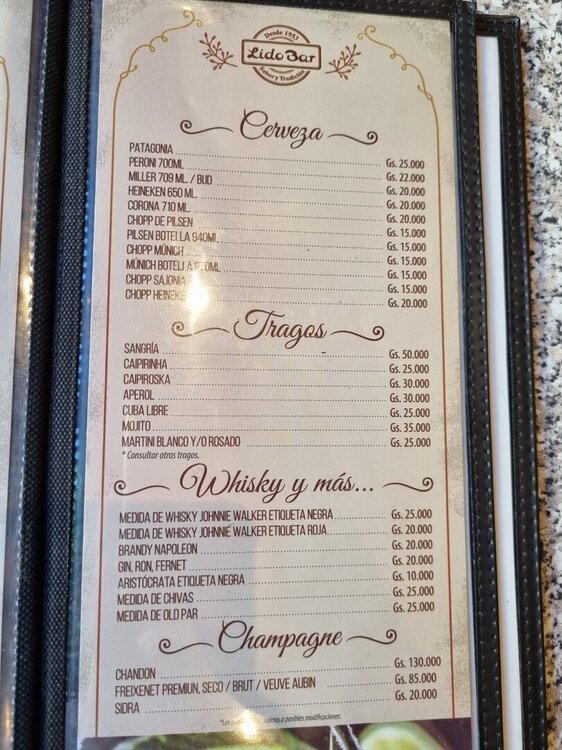 Desde 1953
Lido Bar
Sabor y Tradición
Cerveza
PATAGONIA Gs. 25.000
PERONI 700ML Gs. 22.000
MILLER 709 ML. / BUD Gs. 20.000
HEINEKEN 650 ML. Gs. 20.000
CORONA 710 ML. Gs. 20.000
CHOPP DE PILSEN Gs. 15.000
PILSEN BOTELLA 940ML Gs. 15.000
CHOPP MÚNICH Gs. 15.000
MÚNICH BOTELLA Gs. 15.000
CHOPP SAJONIA Gs. 15.000
CHOPP HEINEKE Gs. 20.000
Tragos
SANGRÍA Gs. 50.000
CAIPIRINHA Gs. 25.000
CAIPIROSKA Gs. 30.000
APEROL Gs. 30.000
CUBA LIBRE Gs. 25.000
MOJITO Gs. 35.000
MARTINI BLANCO Y/O ROSADO Gs. 25.000
* Consultar otros tragos.
Whisky y más...
MEDIDA DE WHISKY JOHNNIE WALKER ETIQUETA NEGRA Gs. 25.000
MEDIDA DE WHISKY JOHNNIE WALKER ETIQUETA ROJA Gs. 20.000
BRANDY NAPOLEON Gs. 20.000
GIN, RON, FERNET Gs. 20.000
ARISTÓCRATA ETIQUETA NEGRA Gs. 10.000
MEDIDA DE CHIVAS Gs. 25.000
MEDIDA DE OLD PAR Gs. 25.000
Champagne
CHANDON Gs. 130.000
FREIXENET PREMIUN, SECO / BRUT / VEUVE AUBIN Gs. 85.000
SIDRA Gs. 20.000
*Los a posibles modificaciones.